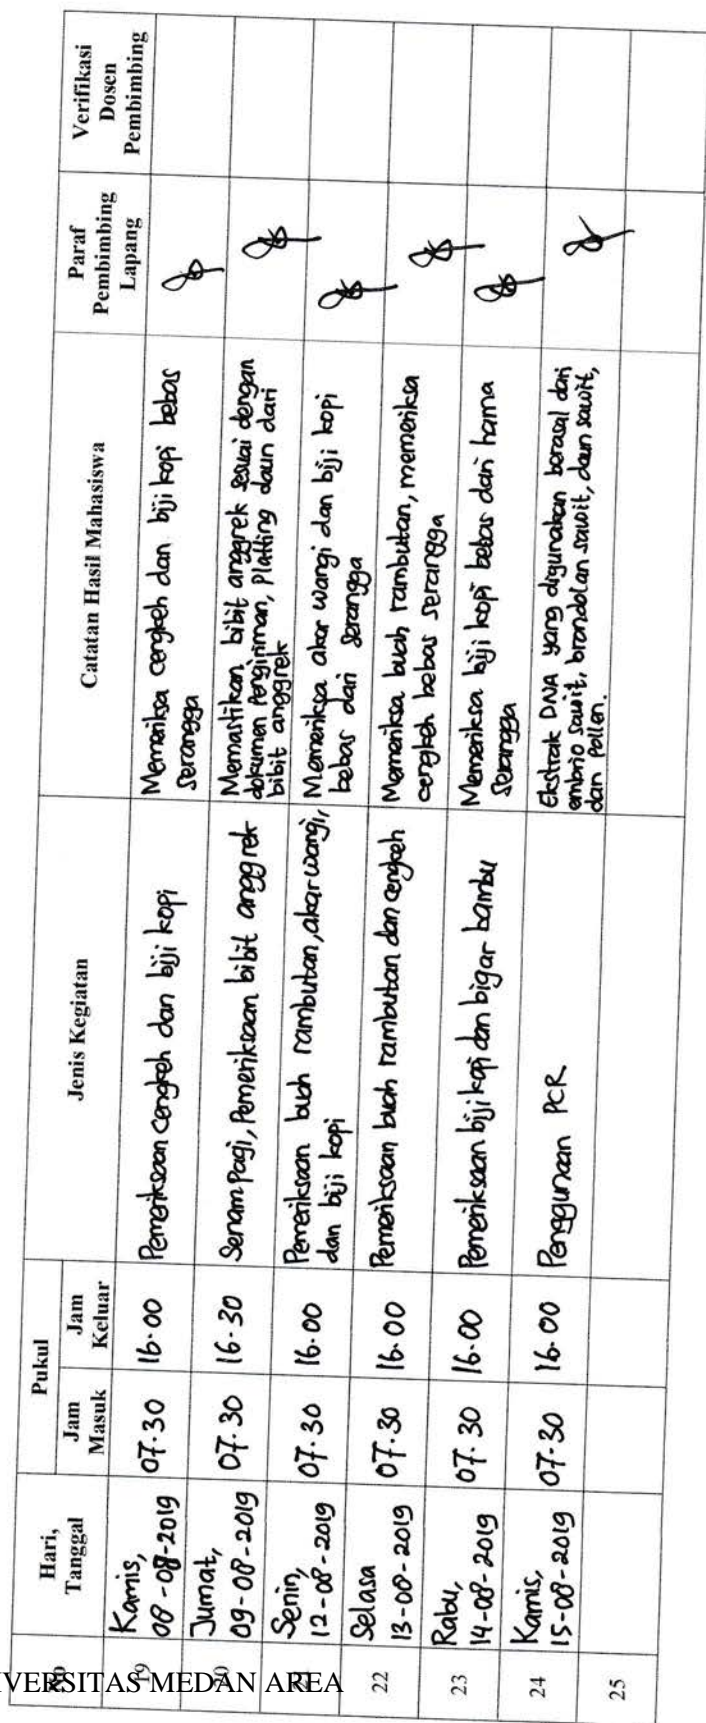 No
Hari,
Tanggal
Pukul
Jam
Masuk
Jam
Keluar
Jenis Kegiatan
Catatan Hasil Mahasiswa
Paraf
Pembimbing
Lapang
Verifikasi
Dosen
Pembimbing
19
Kamis,
08-08-2019
07.30
16.00
Pemeriksaan cengkeh dan biji kopi
Memeriksa cengkeh dan biji kopi bebas
serangga
20
Jumat,
09-08-2019
07.30
16.30
Senam Pagi, Pemeriksaan bibit anggrek
Memastikan bibit anggrek sesuai dengan
dokumen Pengiriman, Platting daun dari
bibit anggrek
21
Senin,
12-08-2019
07.30
16.00
Pemeriksaan buah rambutan, akar wangi,
dan biji kopi
Memeriksa akar wangi dan biji kopi
bebas dari serangga
22
Selasa
13-08-2019
07.30
16.00
Pemeriksaan buah rambutan dan cengkeh
Memeriksa buah rambutan, memeriksa
cengkeh bebas serangga
23
Rabu,
14-08-2019
07.30
16.00
Pemeriksaan biji kopi dan bigar bambu
Memeriksa biji kopi bebas dari hama
serangga
24
Kamis,
15-08-2019
07.30
16.00
Penggunaan PCR
Ekstrak DNA yang digunakan berasal dari
embrio sawit, brondolan sawit, daun sawit,
dan Pollen.
25
VERSITAS MEDAN AREA